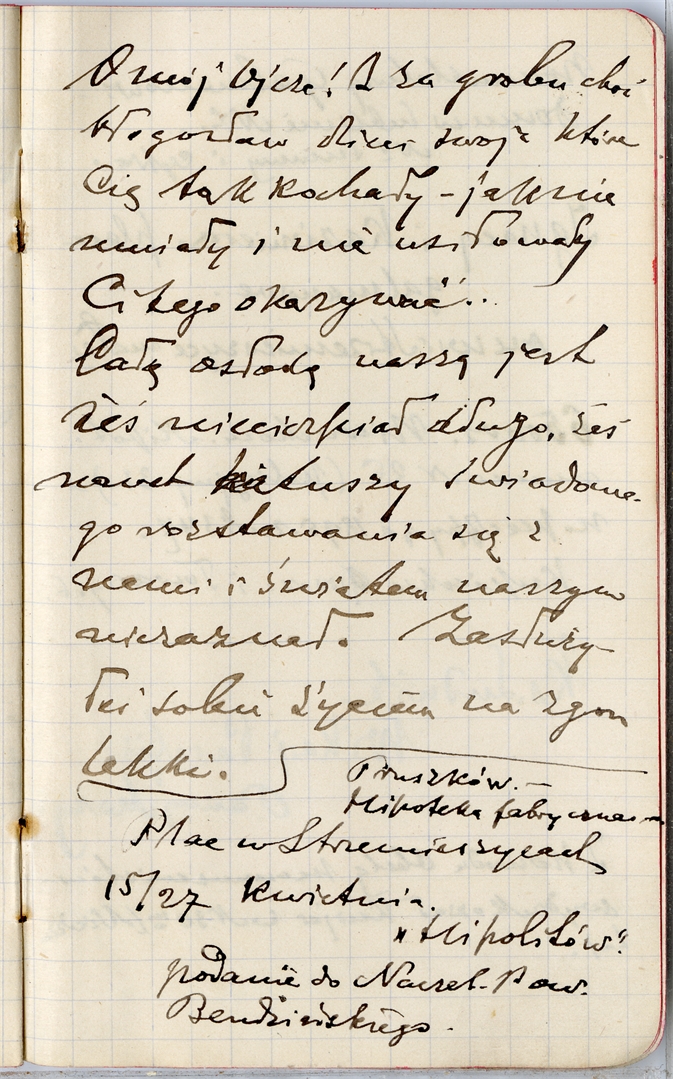 O mój Ojcze! I za grobu choć
błogosław dzieci swoje które
Cię tak kochały – jak nie
umiały i nie usiłowały
Ci tego okazywać..
Całą osłodą naszą jest
żeś nie cierpiał długo, żeś
nawet katuszy świadome-
go rozstawania się z
nami i światem naszym
nie zaznał. Zasłuży-
łeś sobie życiem na zgon
lekki.
Pruszków. –
Hipoteka fabryczna –
Plac w Strzemieszycach
15/27 Kwietnia.
"Hipolitów"
podanie do Naczel. Pow.
Bendzińskiego.